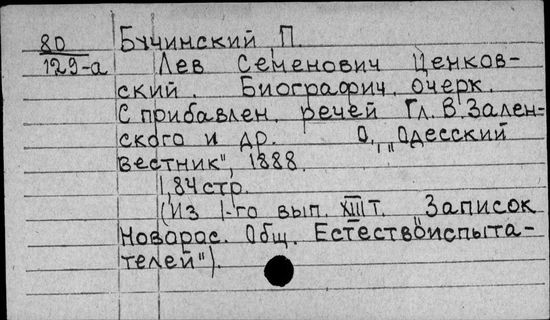 80
129-а
Бучинский П.
Лев Семенович Ценков-
ский. Биографич. очерк.
С прибавлен. речей Гл. В. Зален-
ского и др. О., „Одесский
вестник", 1888.
1,84 стр.
(Из 1-го вып. XIII т. „Записок
Новорос. Общ. Естествоиспыта-
телей").